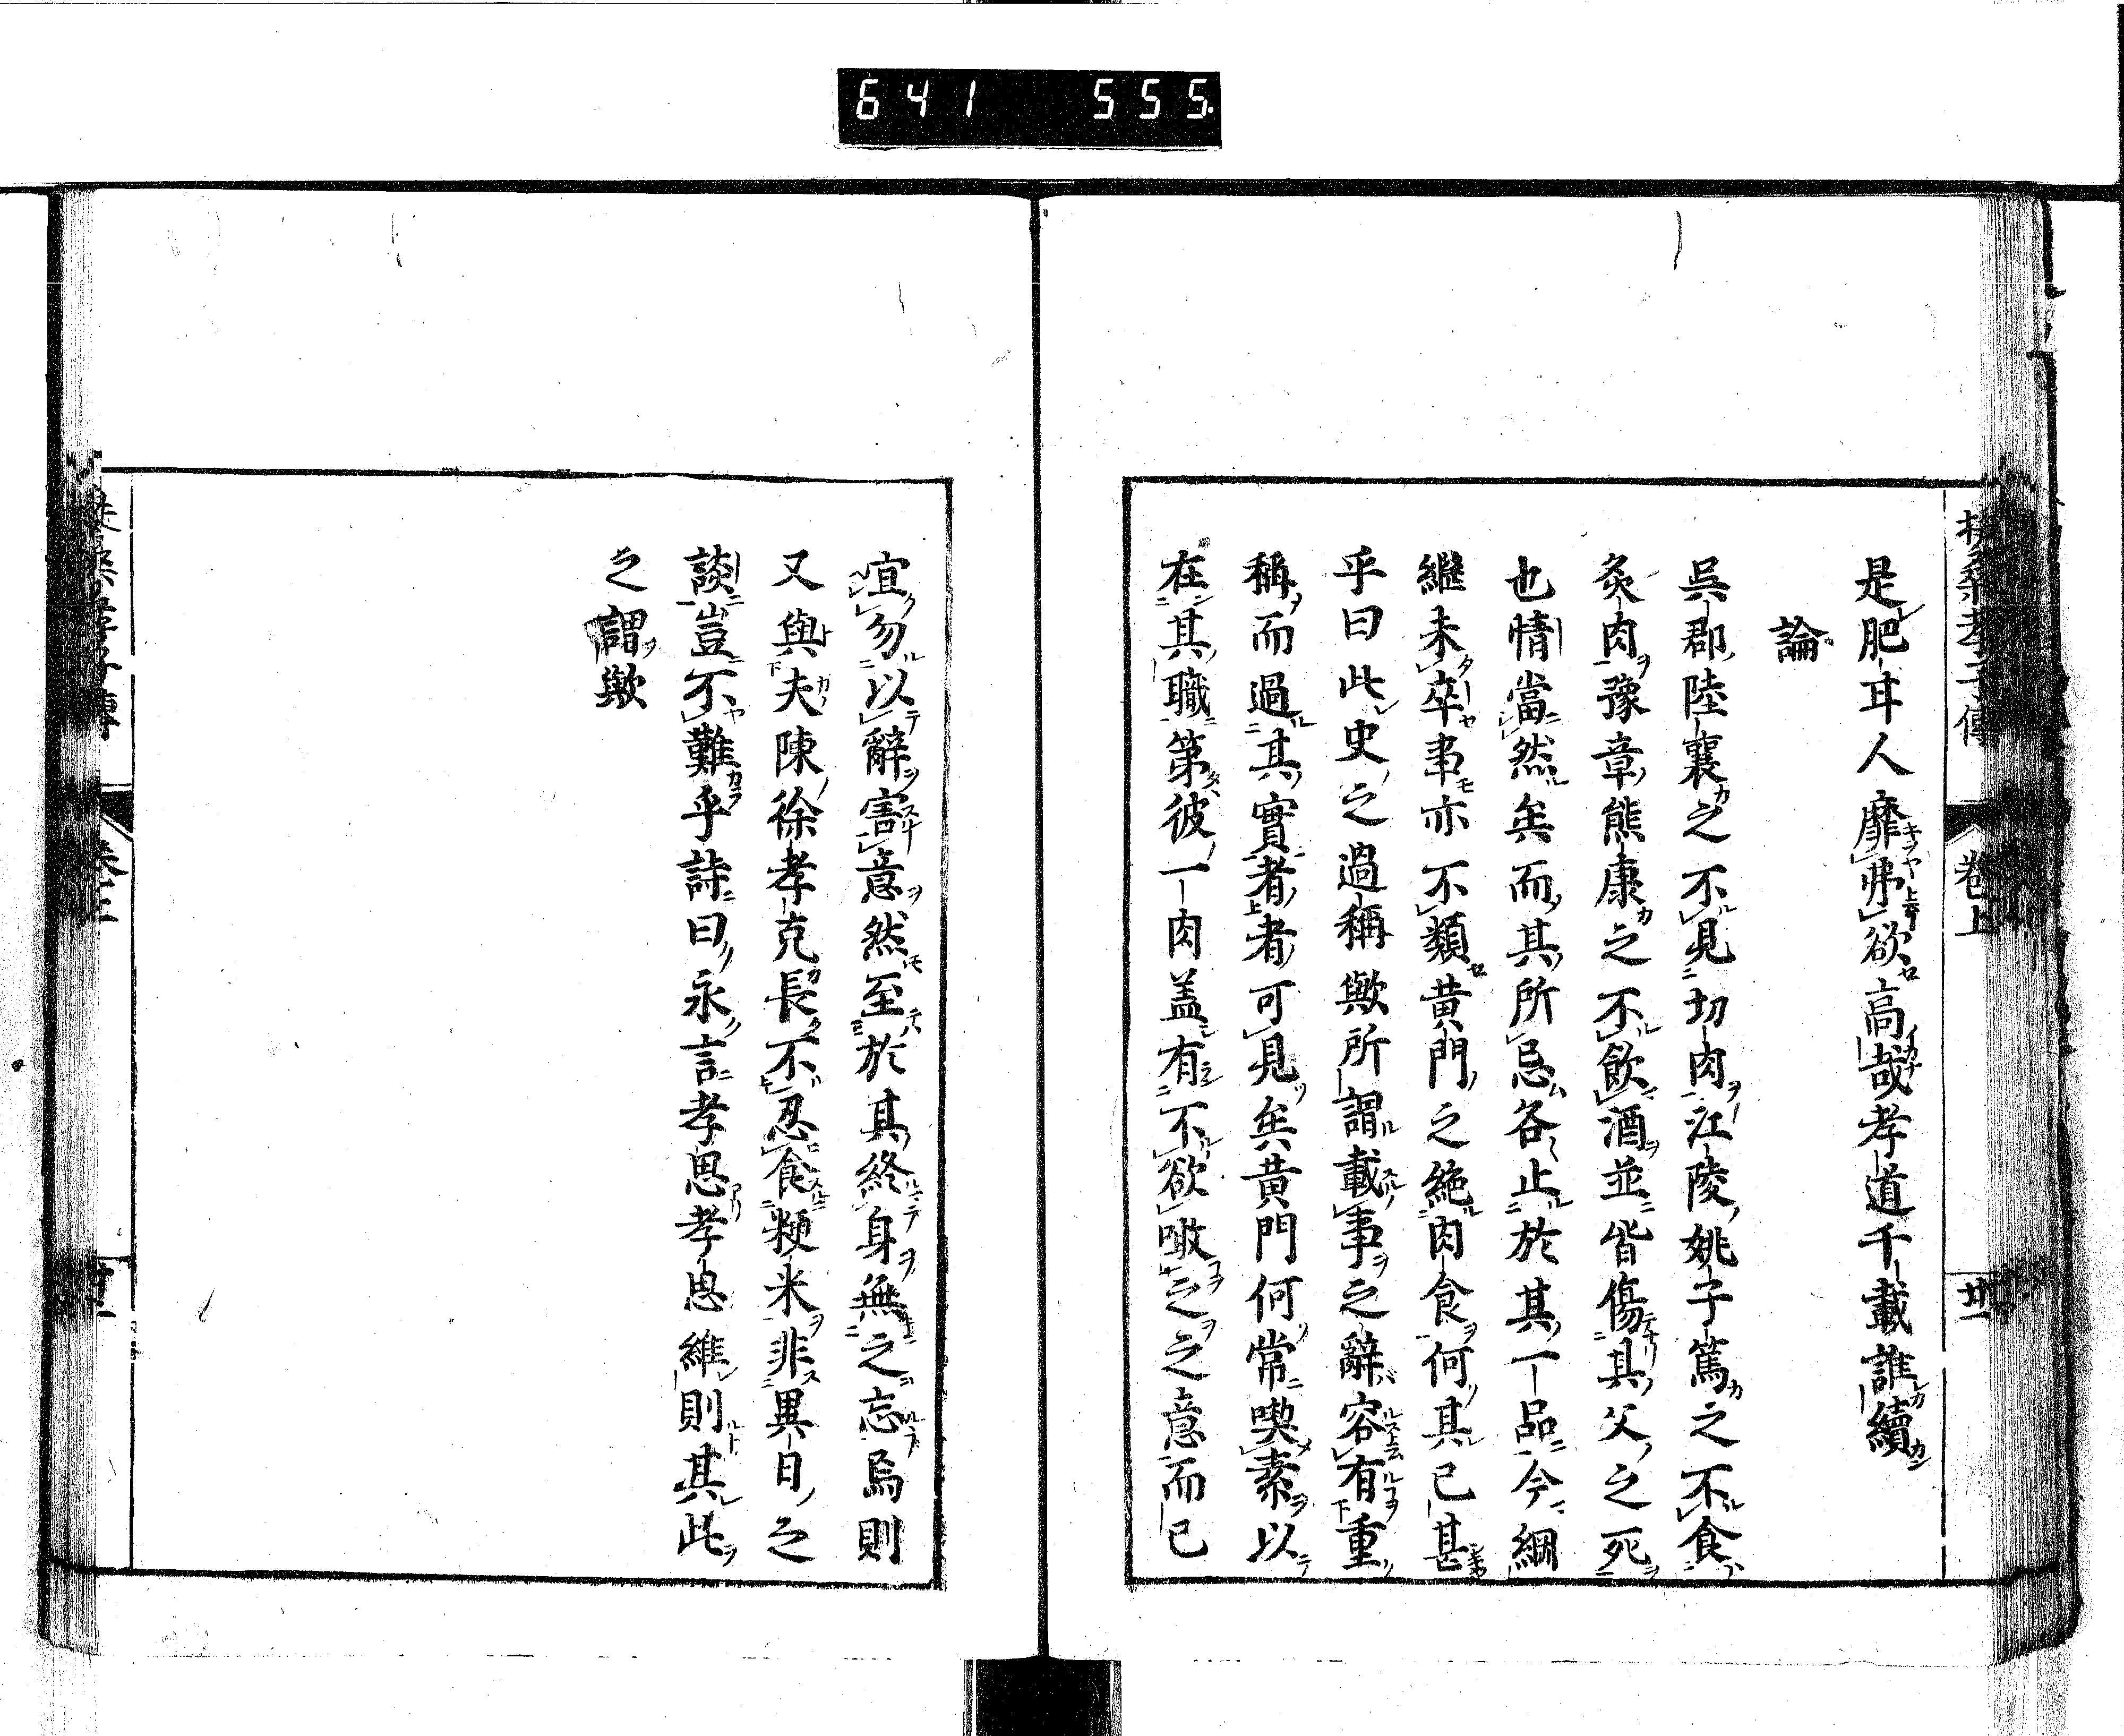 641 555
扶桑孝子傳 卷上 廿一
是肥耳人靡弗欲高哉孝道千載誰續
論
吳郡陸襄之不見切肉江陵姚子篤之不食
炙肉豫章熊康之不飲酒並皆傷其父之死
也情當然矣而其所忌各止於其一品今綱
繼未卒事亦不類黄門之絶肉食何其已甚
乎曰此史之過稱歟所謂載事之辭容有重
稱而過其實者者可見矣黄門何常喫素以
在其職第彼一肉盖有不欲噉之之意而已
宜勿以辭害意然至於其終身無之忘焉則
又與夫陳徐孝克長不忍食粳米非異日之
談豈不難乎詩曰永言孝思孝思維則其此
之謂歟